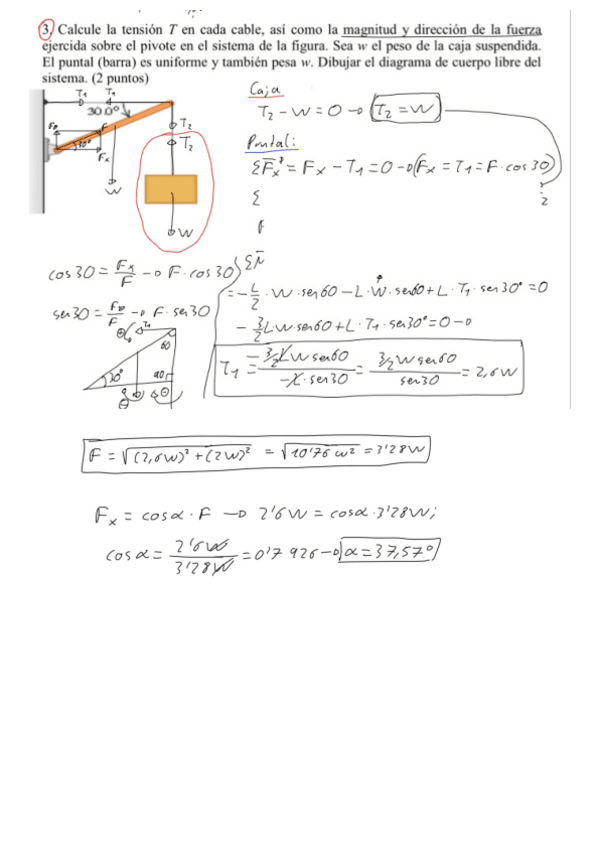 3. Calcule la tensión T en cada cable, así como la magnitud y dirección de la fuerza
ejercida sobre el pivote en el sistema de la figura. Sea w el peso de la caja suspendida.
El puntal (barra) es uniforme y también pesa w. Dibujar el diagrama de cuerpo libre del
sistema. (2 puntos)
Caja
T₂ - W = 0 → T₂ = W
T₁ T₁
30.0°
T₂
T₂
30°
Fx
W
W
Puntal:
ΣFx = Fx - T₁ = 0 → Fx = T₁ = F · cos 30
Σ
F
cos 30 = Fx/F → F · cos 30
sen 30 = F/F → F · sen 30
= -L/2 · W · sen 60 - L · W · sen 60 + L · T₁ · sen 30° = 0
- 3/2 L W sen 60 + L · T₁ · sen 30° = 0 →
T₁ = -3/2 L W sen 60 / -L · sen 30 = 3/2 W sen 60 / sen 30 = 2,6 W
T₁
60
30°
90
F = √(2,6w)² + (2w)² = √10'76 w² = 3'28 W
Fx = cos α · F → 2'6 W = cos α · 3'28 W;
cos α = 2'6 W / 3'28 W = 0'7926 → α = 37,57°